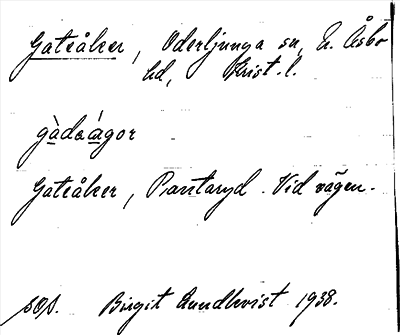 Gateåker, Oderljunga sn, N. Åsbo
hd, Krist. l.
gàdaágor
Gateåker, Pantaryd. Vid vägen.
Birgit Lundkvist 1938.